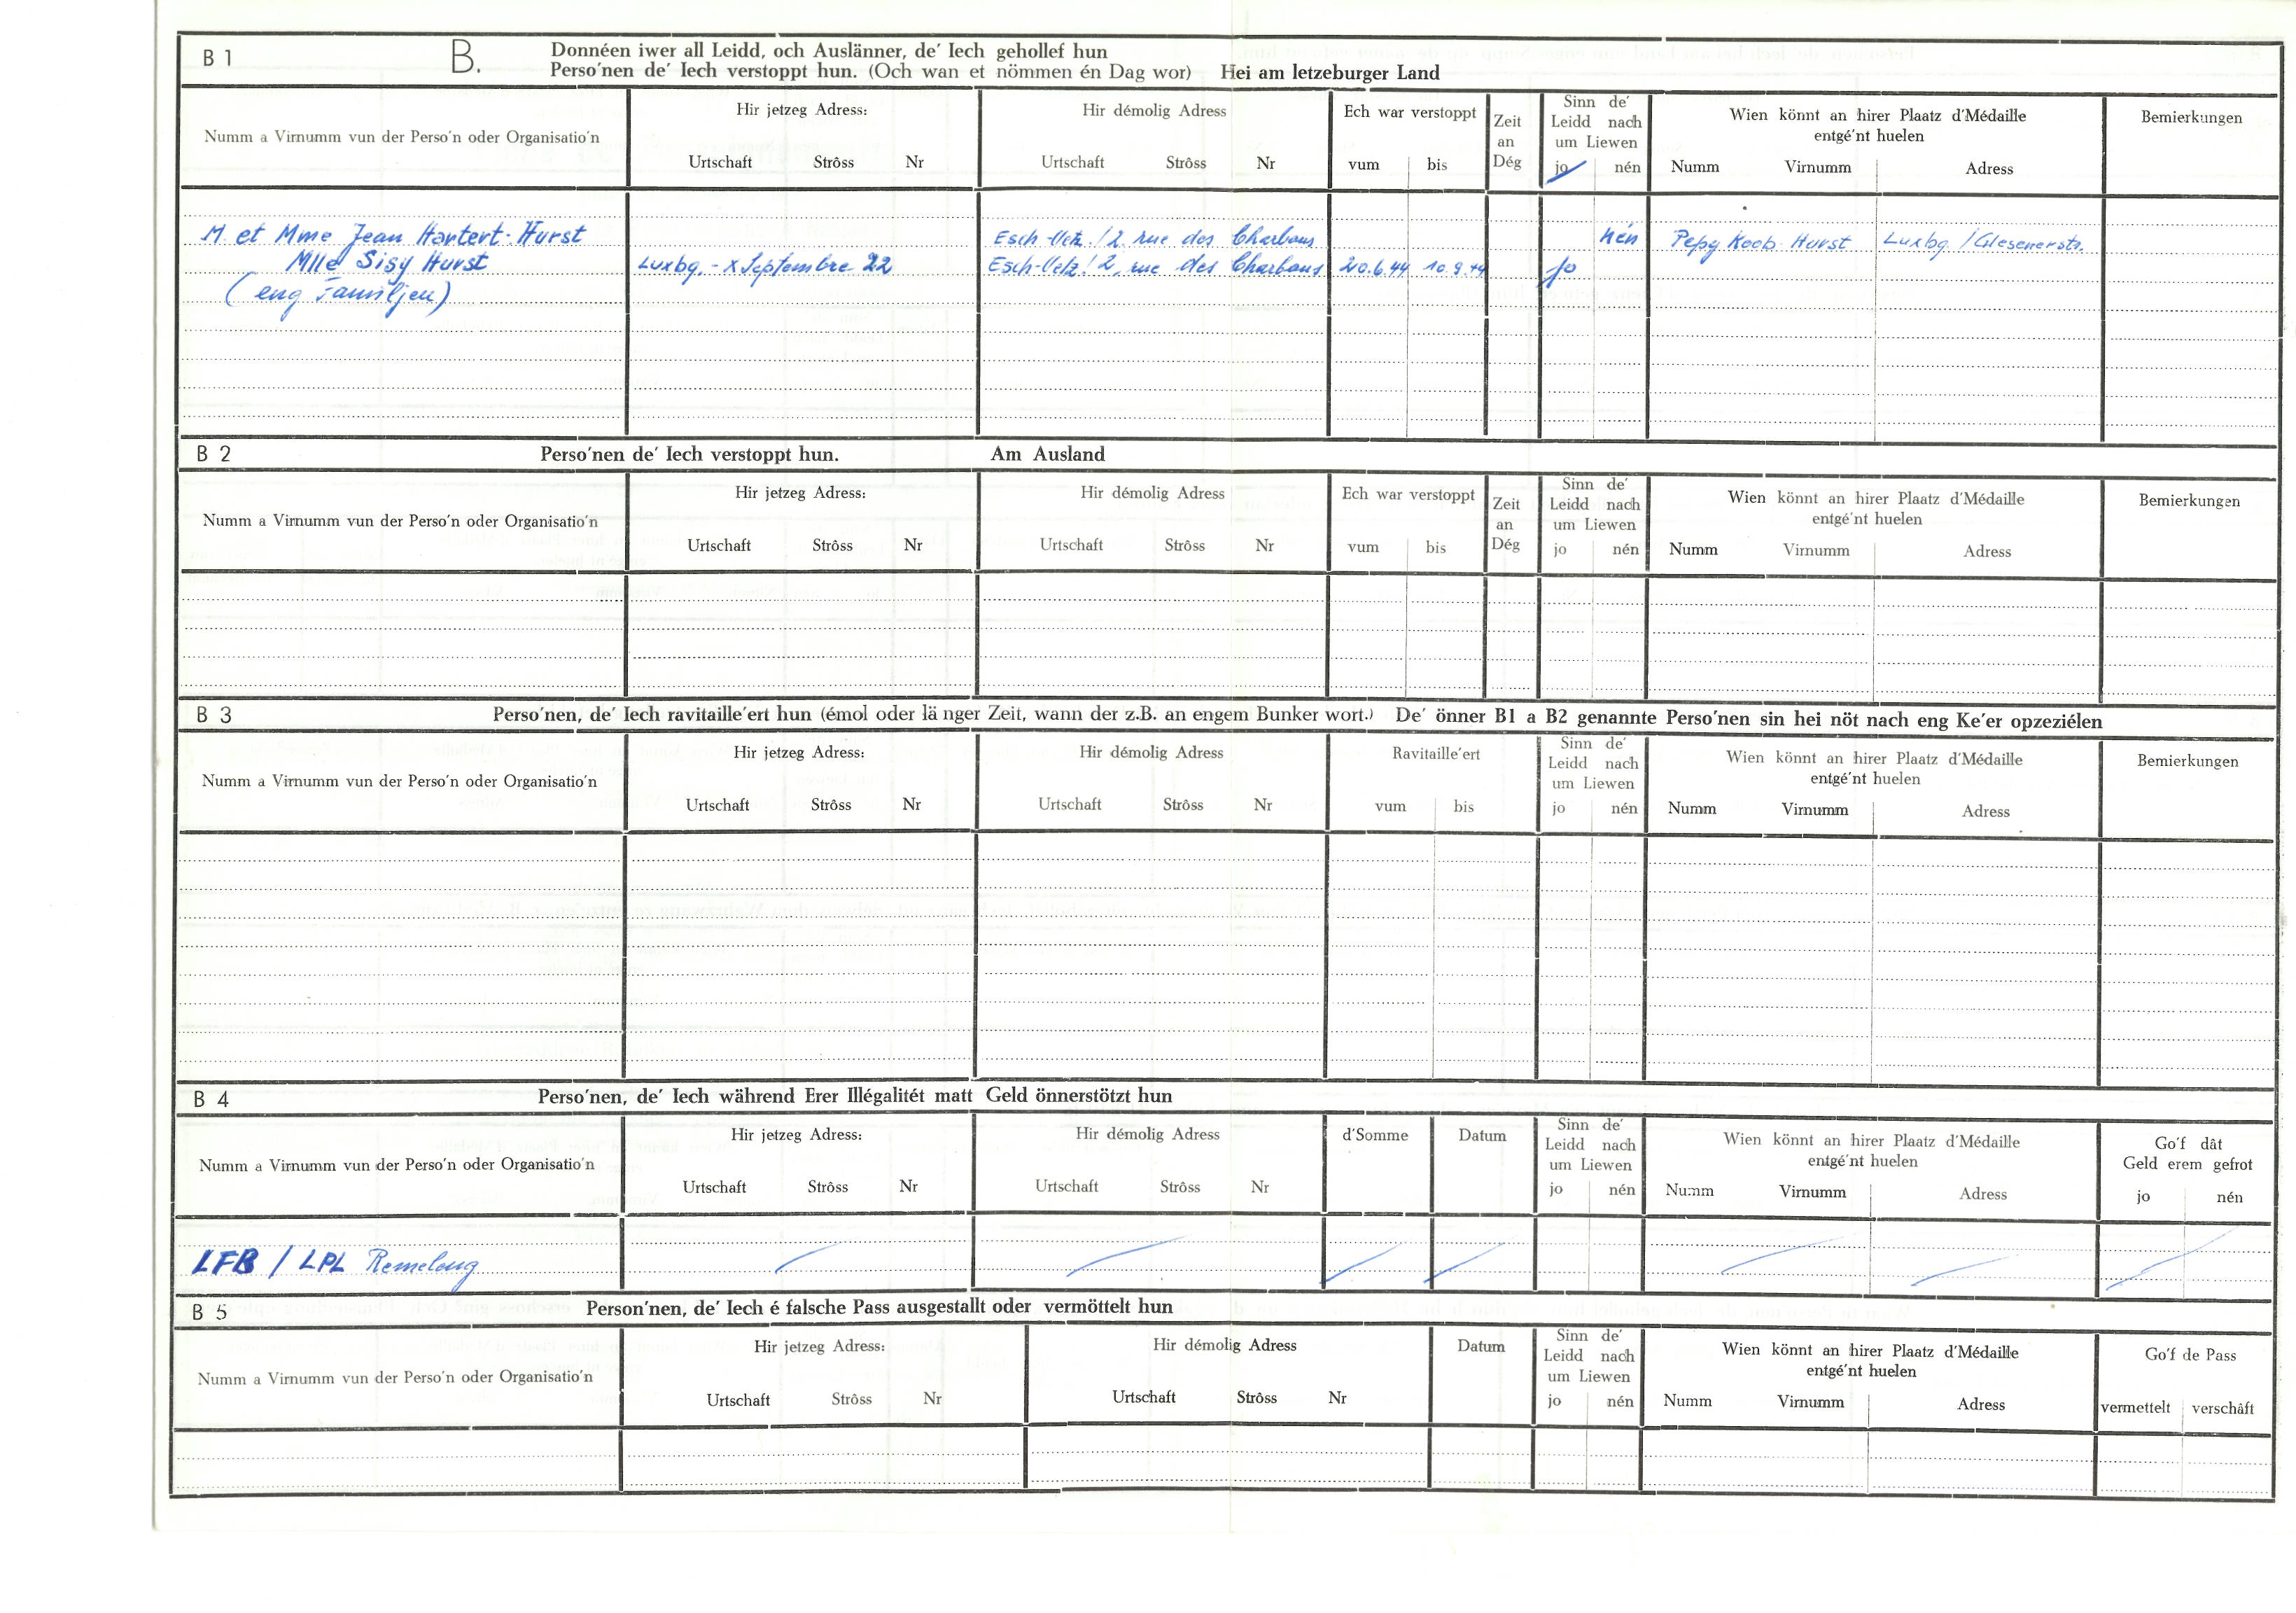 B 1
B.
Donnéen iwer all Leidd, och Auslänner, de' Iech gehollef hun
Perso'nen de' Iech verstoppt hun. (Och wan et nömmen én Dag wor) Hei am letzeburger Land
Numm a Virnumm vun der Perso'n oder Organisatio'n
Hir jetzeg Adress:
Urtschaft Strôss Nr
Hir démolig Adress
Urtschaft Strôss Nr
Ech war verstoppt
vum bis
Zeit
an
Dég
Sinn de'
Leidd nach
um Liewen
jo nén
Wien könnt an hirer Plaatz d'Médaille
entgé'nt huelen
Numm Virnumm Adress
Bemierkungen
M et Mme Jean Hartert-Hurst Esch-Uelz. / 2 rue des Charbons nén Pepy Koob-Hurst Luxbg. / Glesenerstr.
Mlle Sisy Hurst Luxbg. - X Septembre 22 Esch-Uelz / 2, rue des Charbons 20.6.44 10.9.44 jo
(eng Familjen)
B 2
Perso'nen de' Iech verstoppt hun. Am Ausland
Numm a Virnumm vun der Perso'n oder Organisatio'n
Hir jetzeg Adress:
Urtschaft Strôss Nr
Hir démolig Adress
Urtschaft Strôss Nr
Ech war verstoppt
vum bis
Zeit
an
Dég
Sinn de'
Leidd nach
um Liewen
jo nén
Wien könnt an hirer Plaatz d'Médaille
entgé'nt huelen
Numm Virnumm Adress
Bemierkungen
B 3
Perso'nen, de' Iech ravitaille'ert hun (émol oder länger Zeit, wann der z.B. an engem Bunker wort.) De' önner B1 a B2 genannte Perso'nen sin hei nöt nach eng Ke'er opzeziélen
Numm a Virnumm vun der Perso'n oder Organisatio'n
Hir jetzeg Adress:
Urtschaft Strôss Nr
Hir démolig Adress
Urtschaft Strôss Nr
Ravitaille'ert
vum bis
Sinn de'
Leidd nach
um Liewen
jo nén
Wien könnt an hirer Plaatz d'Médaille
entgé'nt huelen
Numm Virnumm Adress
Bemierkungen
B 4
Perso'nen, de' Iech während Erer Illégalitét matt Geld önnerstötzt hun
Numm a Virnumm vun der Perso'n oder Organisatio'n
Hir jetzeg Adress:
Urtschaft Strôss Nr
Hir démolig Adress
Urtschaft Strôss Nr
d'Somme
Datum
Sinn de'
Leidd nach
um Liewen
jo nén
Wien könnt an hirer Plaatz d'Médaille
entgé'nt huelen
Numm Virnumm Adress
Go'f dât
Geld erem gefrot
jo nén
LFB / LPL Remelang
B 5
Person'nen, de' Iech é falsche Pass ausgestallt oder vermöttelt hun
Numm a Virnumm vun der Perso'n oder Organisatio'n
Hir jetzeg Adress:
Urtschaft Strôss Nr
Hir démolig Adress
Urtschaft Strôss Nr
Datum
Sinn de'
Leidd nach
um Liewen
jo nén
Wien könnt an hirer Plaatz d'Médaille
entgé'nt huelen
Numm Virnumm Adress
Go'f de Pass
vermettelt verschâft